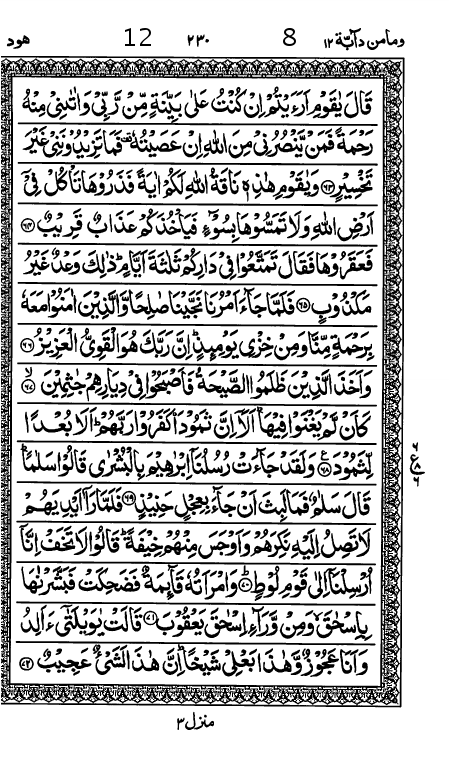 ومامن دآبّة ١٢ 8 ٢٣٠ 12 هود
قَالَ يٰقَوْمِ اَرَءَيْتُمْ اِنْ كُنْتُ عَلٰى بَيِّنَةٍ مِّنْ رَّبِّىْ وَاٰتٰىنِىْ مِنْهُ
رَحْمَةً فَمَنْ يَّنْصُرُنِىْ مِنَ اللّٰهِ اِنْ عَصَيْتُهٗ ۗ فَمَا تَزِيْدُوْنَنِىْ غَيْرَ
تَخْسِيْرٍ ﴿٦٣﴾ وَيٰقَوْمِ هٰذِهٖ نَاقَةُ اللّٰهِ لَكُمْ اٰيَةً فَذَرُوْهَا تَاْكُلْ فِىْۤ
اَرْضِ اللّٰهِ وَلَا تَمَسُّوْهَا بِسُوْٓءٍ فَيَاْخُذَكُمْ عَذَابٌ قَرِيْبٌ ﴿٦٤﴾
فَعَقَرُوْهَا فَقَالَ تَمَتَّعُوْا فِىْ دَارِكُمْ ثَلٰثَةَ اَيَّامٍ ؕ ذٰلِكَ وَعْدٌ غَيْرُ
مَكْذُوْبٍ ﴿٦٥﴾ فَلَمَّا جَآءَ اَمْرُنَا نَجَّيْنَا صٰلِحًا وَّالَّذِيْنَ اٰمَنُوْا مَعَهٗ
بِرَحْمَةٍ مِّنَّا وَمِنْ خِزْىِ يَوْمِئِذٍ ؕ اِنَّ رَبَّكَ هُوَ الْقَوِىُّ الْعَزِيْزُ ﴿٦٦﴾
وَاَخَذَ الَّذِيْنَ ظَلَمُوا الصَّيْحَةُ فَاَصْبَحُوْا فِىْ دِيَارِهِمْ جٰثِمِيْنَ ۙ ﴿٦٧﴾
كَاَنْ لَّمْ يَغْنَوْا فِيْهَا ؕ اَلَاۤ اِنَّ ثَمُوْدَا۟ كَفَرُوْا رَبَّهُمْ ؕ اَلَا بُعْدًا
لِّثَمُوْدَ ﴿٦٨﴾ ع وَلَقَدْ جَآءَتْ رُسُلُنَاۤ اِبْرٰهِيْمَ بِالْبُشْرٰى قَالُوْا سَلٰمًا ؕ
قَالَ سَلٰمٌ فَمَا لَبِثَ اَنْ جَآءَ بِعِجْلٍ حَنِيْذٍ ﴿٦٩﴾ فَلَمَّا رَاٰۤ اَيْدِيَهُمْ
لَا تَصِلُ اِلَيْهِ نَكِرَهُمْ وَاَوْجَسَ مِنْهُمْ خِيْفَةً ؕ قَالُوْا لَا تَخَفْ اِنَّاۤ
اُرْسِلْنَاۤ اِلٰى قَوْمِ لُوْطٍ ؕ ﴿٧٠﴾ وَامْرَاَتُهٗ قَآئِمَةٌ فَضَحِكَتْ فَبَشَّرْنٰهَا
بِاِسْحٰقَ ۙ وَمِنْ وَّرَآءِ اِسْحٰقَ يَعْقُوْبَ ﴿٧١﴾ قَالَتْ يٰوَيْلَتٰٓى ءَاَلِدُ
وَاَنَا عَجُوْزٌ وَّهٰذَا بَعْلِىْ شَيْخًا ؕ اِنَّ هٰذَا لَشَىْءٌ عَجِيْبٌ ﴿٧٢﴾
٦ ع ٨ ٦
منزل ٣